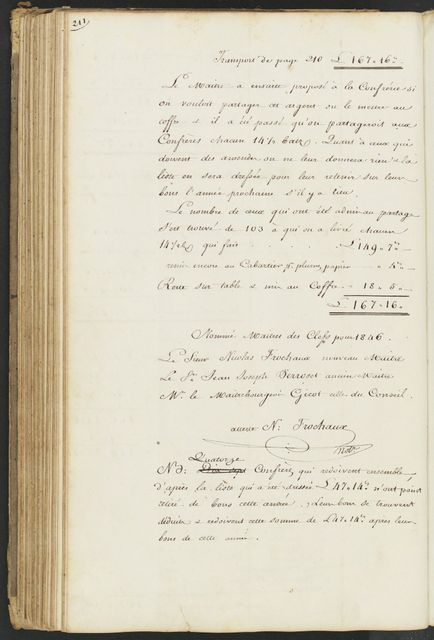 211
Transport de page 210 L 167 " 16 "
Le Maitre a ensuite proposé à la Confrérie si
on vouloit partager cet argent ou le mettre au
coffre & il a été passé qu'on partageroit aux
Confrères chacun 14½ batz. Quant à ceux qui
doivent des on ne leur donnera rien & la
liste en sera dressée pour leur retenir sur leur
bons l'année prochaine s'il y a lieu.
Le nombre de ceux qui ont été admis au partage
s'est trouvé de 103 à qui on a livré chacun
14½ qui fait L 149 " 7 "
remis encore au Cabaretier pr. plume, papier " 5 "
Reste sur table & mis au Coffre " 18 " 8 "
L 167 " 16 "
Nommé Maitres des Clefs pour 1846.
Le Sieur Nicolas Frochaux nouveau Maitre
Le Sr. Jean Joseph Perroset ancien Maitre
Mr. le Maitrebourgeois Gicot celle du Conseil.
atteste N: Frochaux
not.
Quatorze
NB: Confrères qui redoivent ensemble
d'après la liste qui a été dressée L 47 " 14 " n'ont point
retiré de bons cette année, leur bons se trouvent
déduits & redoivent cette somme de L 47 " 14 " après leur
bons de cette année.